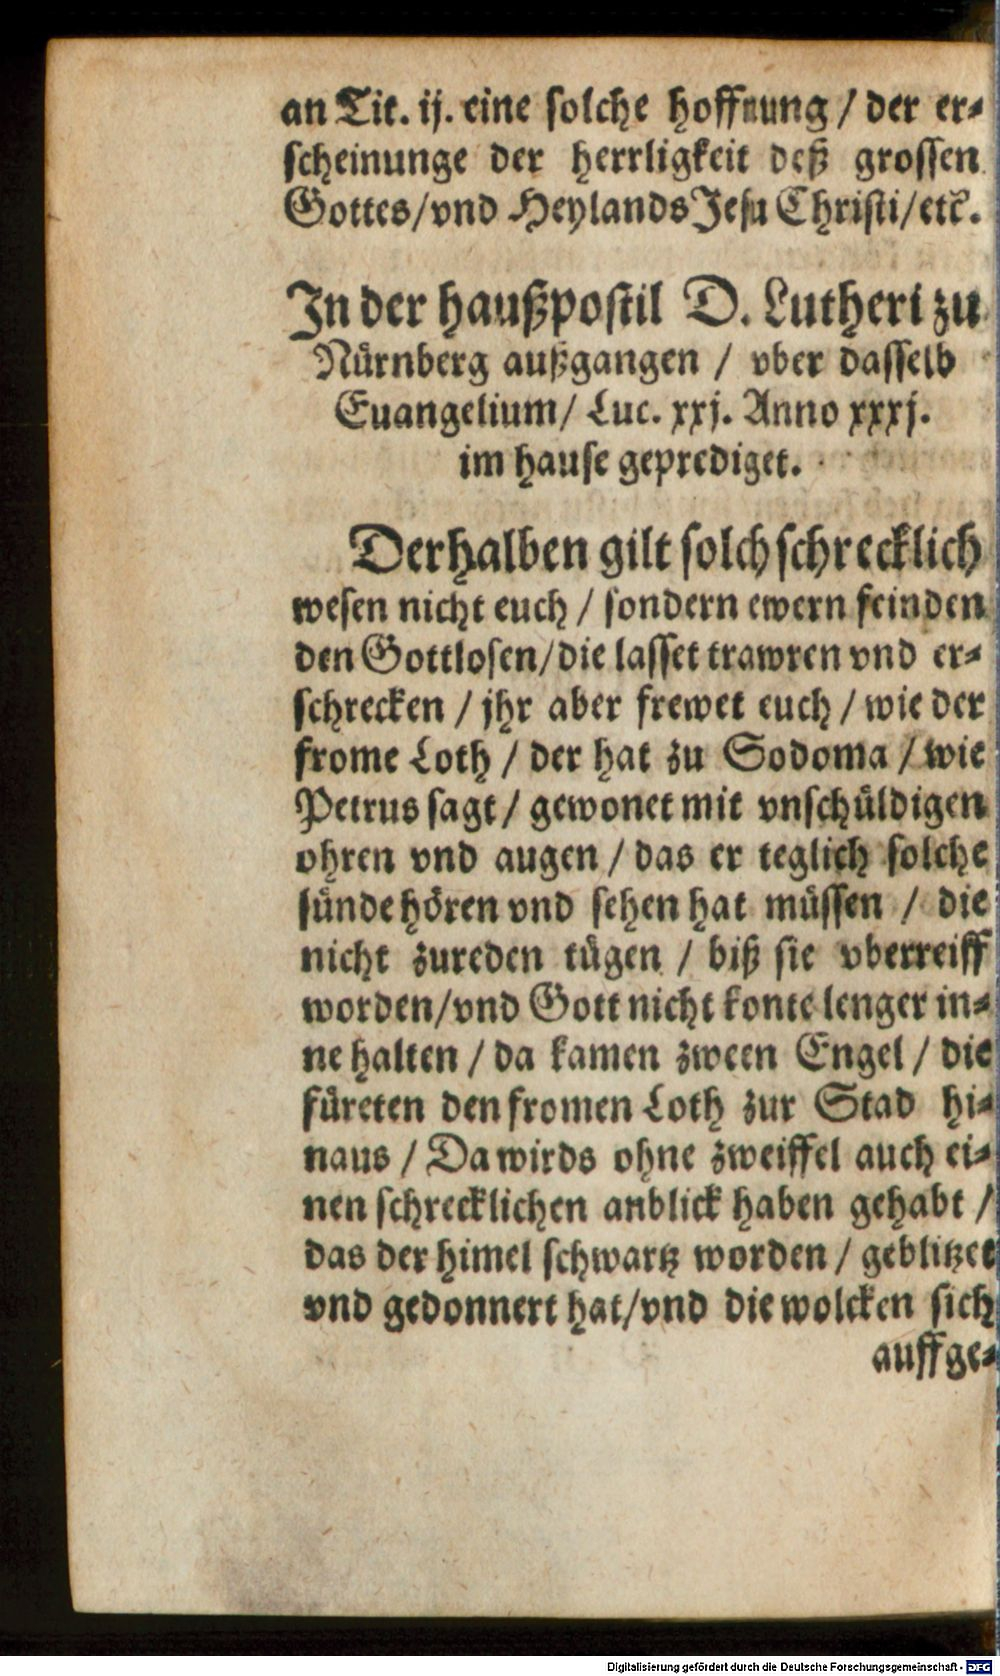 an Tit. ij. eine solche hoffnung / der er-
scheinunge der herrligkeit deß grossen
Gottes/vnd Heylands Jesu Christi/etc.
In der haußpostil D. Lutheri zu
Nürnberg außgangen / vber dasselb
Euangelium/ Luc. xxj. Anno xxxj.
im hause geprediget.
Derhalben gilt solch schrecklich
wesen nicht euch / sondern ewern feinden
den Gottlosen/die lasset trawren vnd er-
schrecken / jhr aber frewet euch / wie der
frome Loth / der hat zu Sodoma / wie
Petrus sagt / gewonet mit vnschüldigen
ohren vnd augen / das er teglich solche
sünde hören vnd sehen hat müssen / die
nicht zureden tügen / biß sie vberreiff
worden/vnd Gott nicht konte lenger in-
ne halten / da kamen zween Engel / die
füreten den fromen Loth zur Stad hi-
naus / Da wirds ohne zweiffel auch ei-
nen schrecklichen anblick haben gehabt /
das der himel schwartz worden / geblitzet
vnd gedonnert hat/vnd die wolcken sich
auffge-
Digitalisierung gefördert durch die Deutsche Forschungsgemeinschaft - DFG